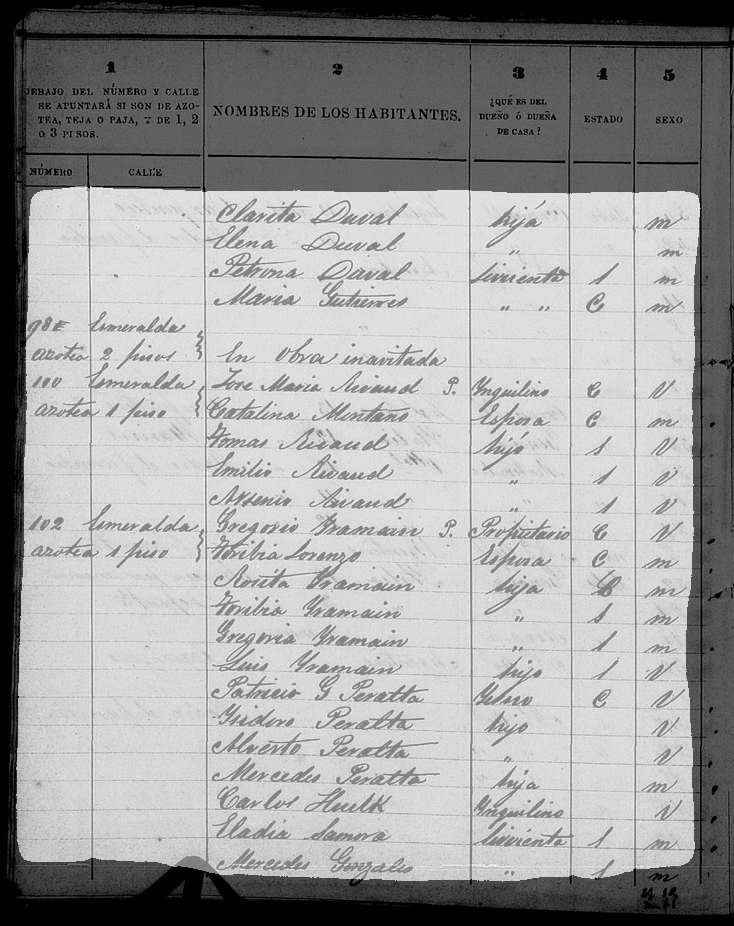 1 2 3 4 5
DEBAJO DEL NÚMERO Y CALLE
SE APUNTARÁ SI SON DE AZO-
TEA, TEJA O PAJA, Y DE 1, 2
O 3 PISOS.
NOMBRES DE LOS HABITANTES.
¿QUÉ ES DEL
DUEÑO Ó DUEÑA
DE CASA?
ESTADO
SEXO
NÚMERO CALLE
Clarita Duval hija m
Elena Duval " m
Petrona Duval Sirvienta S m
Maria Gutierres " " C m
98E Esmeralda "
azotea 2 pisos En Obra inavitada
100 Esmeralda Jose Maria Rivaud P. Ynquilino C V
azotea 1 piso Catalina Montano Esposa C m
Tomas Rivaud hijo S V
Emilio Rivaud " S V
Arsenio Rivaud " S V
102 Esmeralda Gregorio Yramain P. Propietario C V
azotea 1 piso Toribia Lorenzo Esposa C m
Rosita Yramain hija C m
Toribia Yramain " S m
Gregoria Yramain " S m
Luis Yramain hijo S V
Patricio G Peralta Yerno C V
Ysidoro Peralta hijo V
Alverto Peralta " V
Mercedes Peralta hija m
Carlos Huelk Ynquilino V
Eladia Samora Sirvienta S m
Mercedes Gonzales " S m